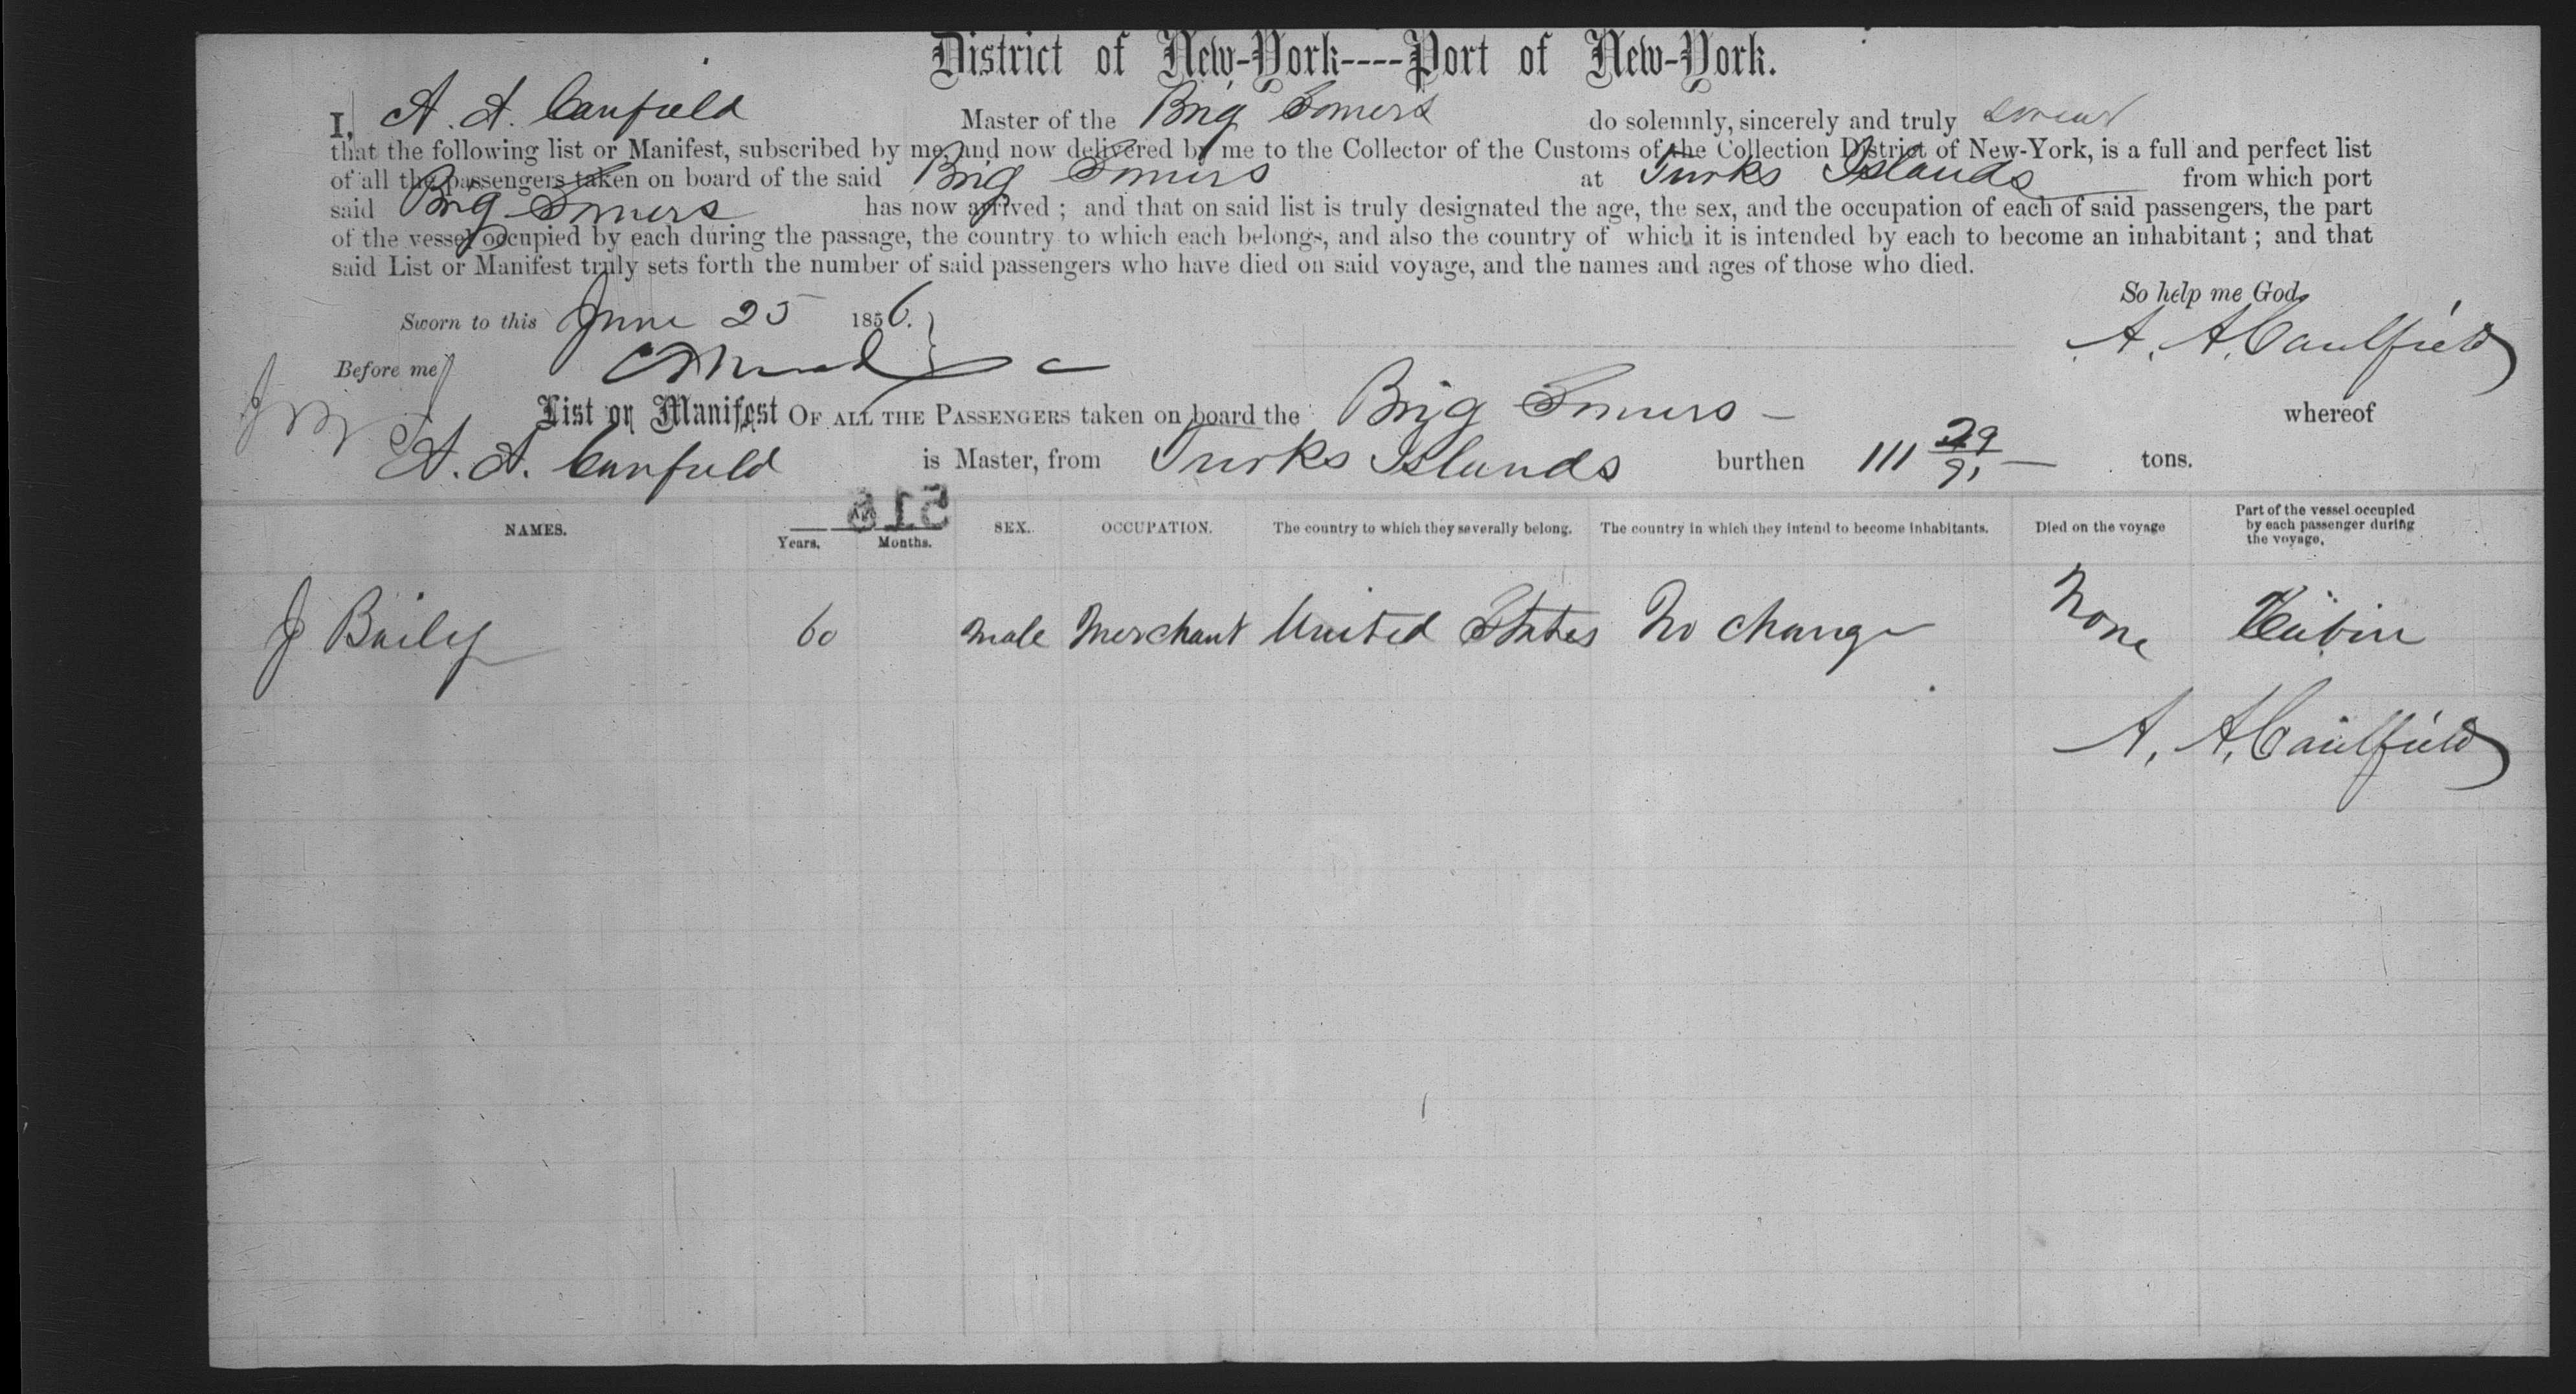 District of New-York----Port of New-York.
I, A. A. Canfield Master of the Brig Somers do solemnly, sincerely and truly swear
that the following list or Manifest, subscribed by me, and now delivered by me to the Collector of the Customs of the Collection District of New-York, is a full and perfect list
of all the passengers taken on board of the said Brig Somers at Turks Islands from which port
said Brig Somers has now arrived ; and that on said list is truly designated the age, the sex, and the occupation of each of said passengers, the part
of the vessel occupied by each during the passage, the country to which each belongs, and also the country of which it is intended by each to become an inhabitant ; and that
said List or Manifest truly sets forth the number of said passengers who have died on said voyage, and the names and ages of those who died.
So help me God,
Sworn to this June 25 1856.
A. A. Caulfield
Before me
List or Manifest OF ALL THE PASSENGERS taken on board the Brig Somers - whereof
A. A. Canfield is Master, from Turks Islands burthen 111 29/91 — tons.
NAMES. Age Years, Months. SEX. OCCUPATION. The country to which they severally belong. The country in which they intend to become inhabitants. Died on the voyage Part of the vessel occupied by each passenger during the voyage.
J Baily 60 male Merchant United States No change None Cabin
A. A. Caulfield